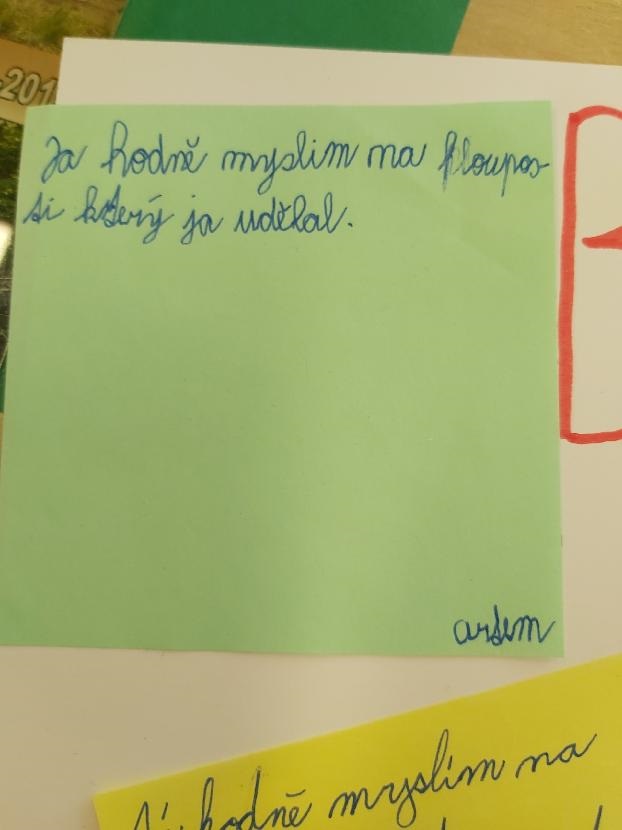 -201
Ja hodně myslim na hloupos
ti který ja udělal.
artem
hodně myslím na